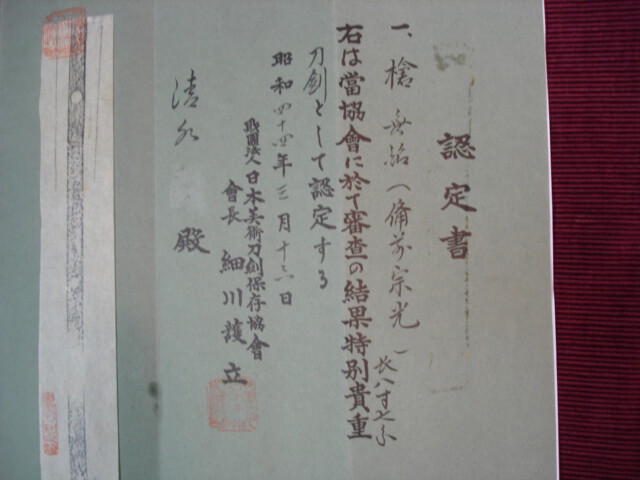 認定書
一、槍 無銘（備前宗光） 長八寸七分
右は當協會に於て審査の結果特別貴重
刀剣として認定する
昭和四十四年三月十六日
財團法人日本美術刀剣保存協會
會長 細川護立
清水 殿